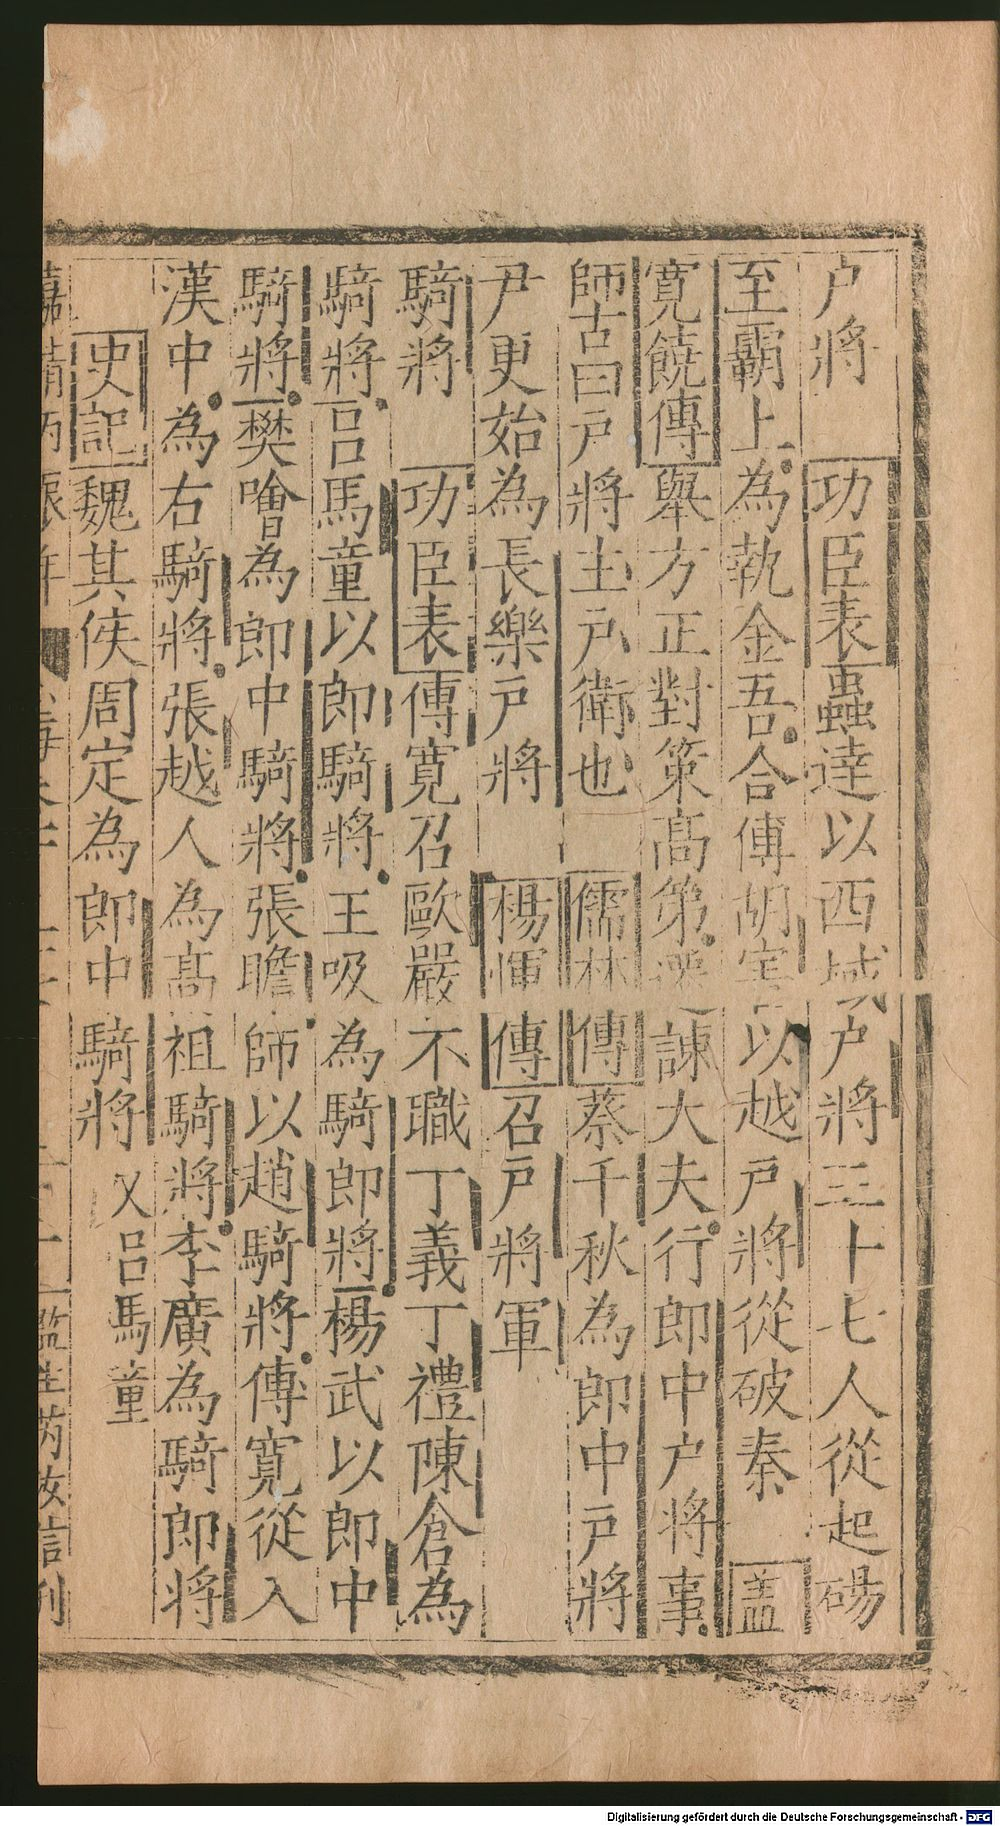 户將　功臣表蟲達以西域户將三十七人從起碭
至霸上為執金吾合傅胡害以越戸將從破秦　蓋
寛饒傳舉方正對策髙第遷諫大夫行郎中户將事
師古曰戸將主戸衛也　儒林傳蔡千秋為郎中戸將
尹更始為長樂戸將　楊惲傳召戸將軍
騎將　功臣表傅寛召歐嚴不職丁義丁禮陳倉為
騎將吕馬童以郎騎將王吸為騎郎將楊武以郎中
騎將樊噲為郎中騎將張瞻師以趙騎將傅寛從入
漢中為右騎將張越人為髙祖騎將李廣為騎郎將
史記魏其侯周定為郎中騎將　又吕馬童
嘉靖丙辰年　監生芮汝信刊
Digitalisierung gefördert durch die Deutsche Forschungsgemeinschaft - DFG